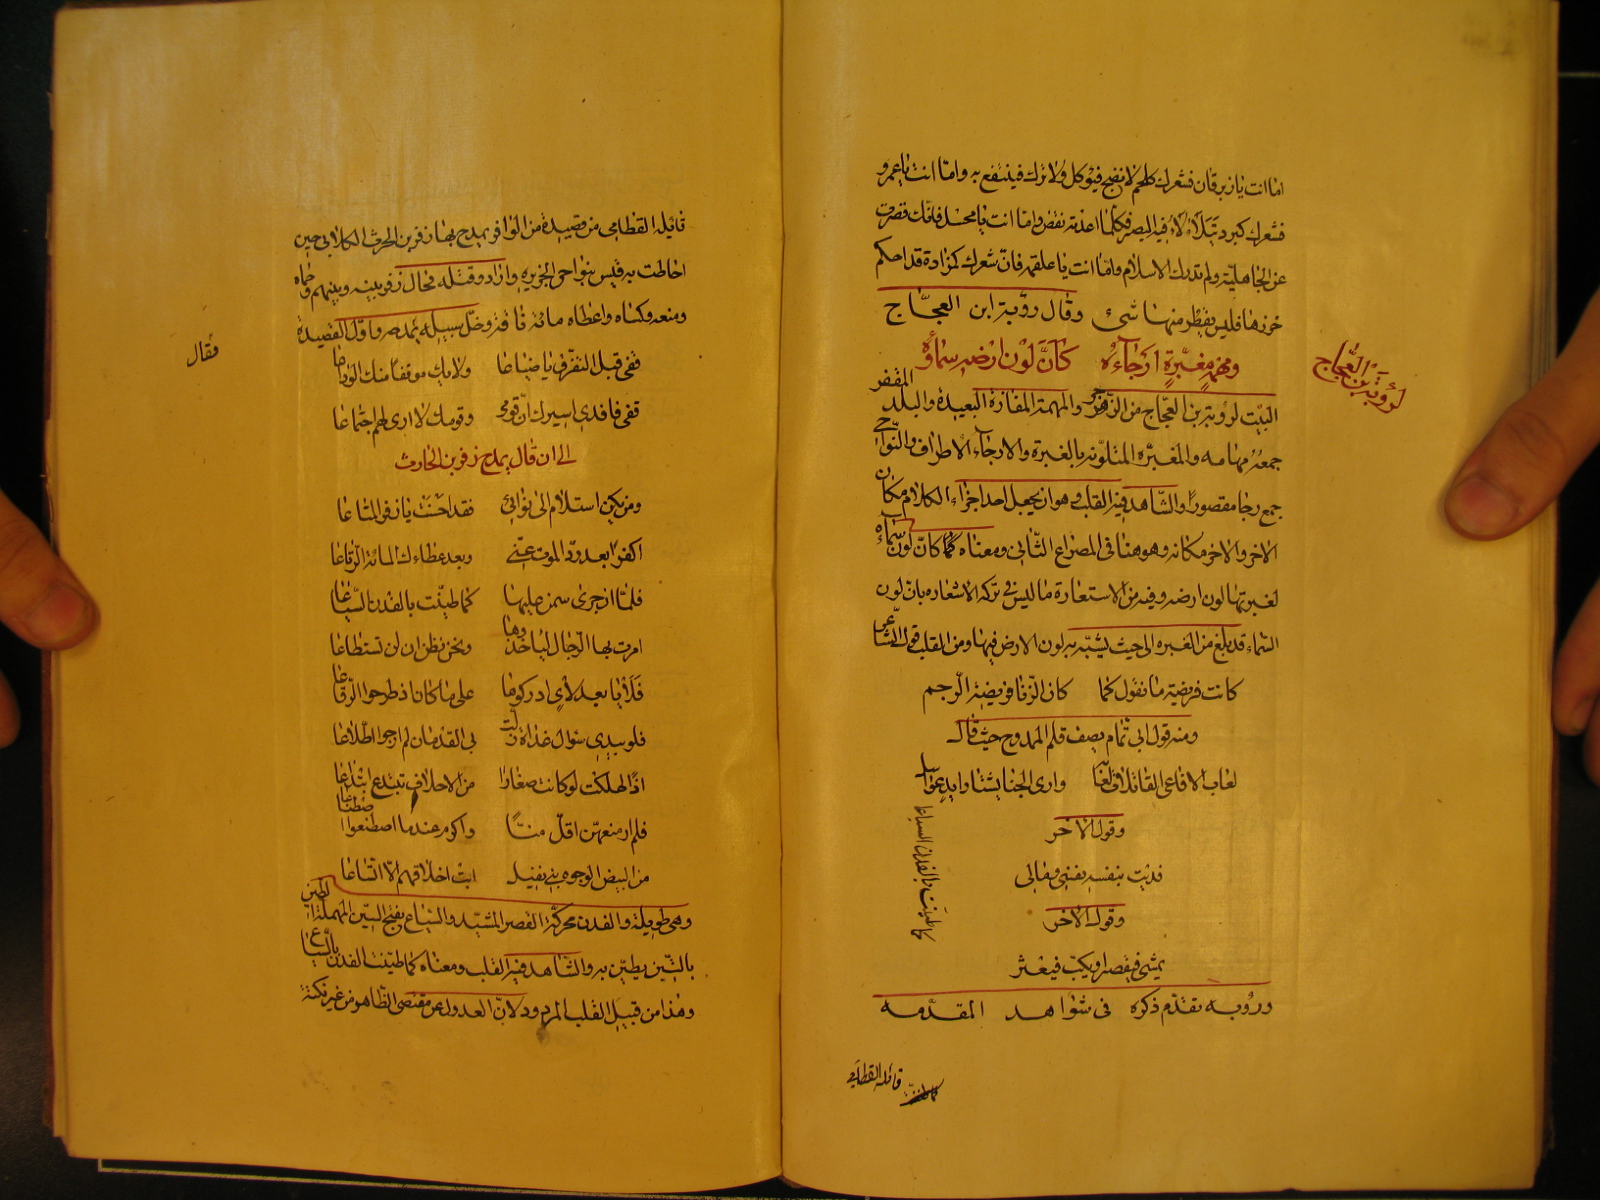 اما انت يا زبرقان فشعرك كلحم لا نضج فيؤكل ولا ترك فينتفع به واما انت يا عمرو
فشعرك كبرد يتلألأ فيه البصر فكلما اعدته نقص واما انت يا مخبل فانك قصرت
عن الجاهلية ولم تدرك الاسلام واما انت يا علقمة فان شعرك كمزادة قد احكم
خرزها فليس يقطر منها شئ وقال رؤبة ابن العجاج
ومهمه مغبرة ارجاءه كأن لون ارضه سماؤه
لرؤبة بن العجاج
البيت لرؤبة بن العجاج من الرجز والمهمة المفازة البعيدة والبلد المقفر
جمعه مهامه والمغبره المتلونه بالغبرة والارجاء الاطراف والنواحي
جمع رجا مقصورا والشاهد فيه القلب وهو ان يجعل احد اجزاء الكلام مكان
الاخر والاخر مكانه وهو هنا فى المصراع الثانى ومعناه كان لون سمائه
لغبرتها لون ارضه وفيه من الاستعارة ما ليس فى تركه الاشعاره بان لون
السماء قد بلغ من الغبره الى حيث يشبه به لون الارض فيها ومن القلب قول الشاعر
كانت فريضة ما تقول كما كان الزنا فريضة الرجم
ومنه قول ابى تمام يصف قلم الممدوح حيث قال
لعاب الافاعى القاتلات لعابه وارى الجنا اشتارايد عواسل
وقول الاخر
فديت بنفسه نفسى ومالى
وقول الاخر
يمشى فيقعس او يكب فيعثر
ورؤبه تقدم ذكره فى شواهد المقدمه
كما طينت بالفدن السياعا
قائله القطامي
قائله القطامى من قصيدة من الوافر يمدح بها زفر بن الحرث الكلابى حين
احاطت به قيس بنواحى الجزيره وارادو قتله فحال زفر بينه وبينهم وحماه
ومنعه وكساه واعطاه مائة ناقة وخلى سبيله يمدحه واول القصيدة
فقال
قفى قبل التفرق يا ضباعا ولا يك موقف منك الوداعا
قفى فافدى اسيرك ان قومى وقومك لا ارى لهم اجتماعا
الى ان قال يمدح زفر بن الحارث
ومن يكن استلام الى ثوائى فقد احسنت يا زفر المتاعا
اكفرا بعد رد الموت عنى وبعد عطاءك المائة الرتاعا
فلما ان جرى سمن عليها كما طينت بالفدن السياعا
امرت بها الرجال لياخذوها ونحن نظن ان لن تستطاعا
فلأيا بعد لأي ادركوها على ما كان اذ طرحوا الرقاعا
فلو بيدي سواك غداة زلت بى القدمان لم ارجوا اطلاعا
اذا لهلكت لو كانت صغارا من الاخلاق تبتدع ابتداعا
فلم ار منعمين اقل منا واكرم عندما اصطنعوا اصطناعا
من البيض الوجوه بنى نفيل ابت اخلاقهم الا اتساعا
وهى طويلة والفدن محركة القصر المشيد والسياع بفتح السين المهملة الطين
بالتبن يطين به والشاهد فيه القلب ومعناه كما طينت الفدن بالسياع
وهذا من قبيل القلب المردود لان العدول عن مقتضى الظاهر من غير نكتة